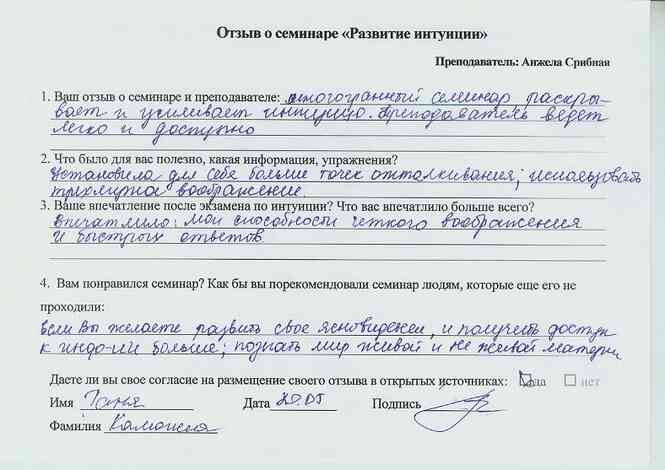 Отзыв о семинаре «Развитие интуиции»
Преподаватель: Анжела Срибная
1. Ваш отзыв о семинаре и преподавателе: многогранный семинар раскры-
вает и усиливает интуицию. Преподаватель ведет
легко и доступно
2. Что было для вас полезно, какая информация, упражнения?
Установила для себя больше точек отталкивания; использовать
трехмерное воображение.
3. Ваше впечатление после экзамена по интуиции? Что вас впечатлило больше всего?
Впечатлило: мои способности четкого воображения
и быстрых ответов
4. Вам понравился семинар? Как бы вы порекомендовали семинар людям, которые еще его не
проходили:
Если Вы желаете развить свое ясновидение, и получить доступ
к инфо-ии больше; познать мир живой и не живой материи
Даете ли вы свое согласие на размещение своего отзыва в открытых источниках: да нет
Имя Таня Дата 20.05 Подпись
Фамилия